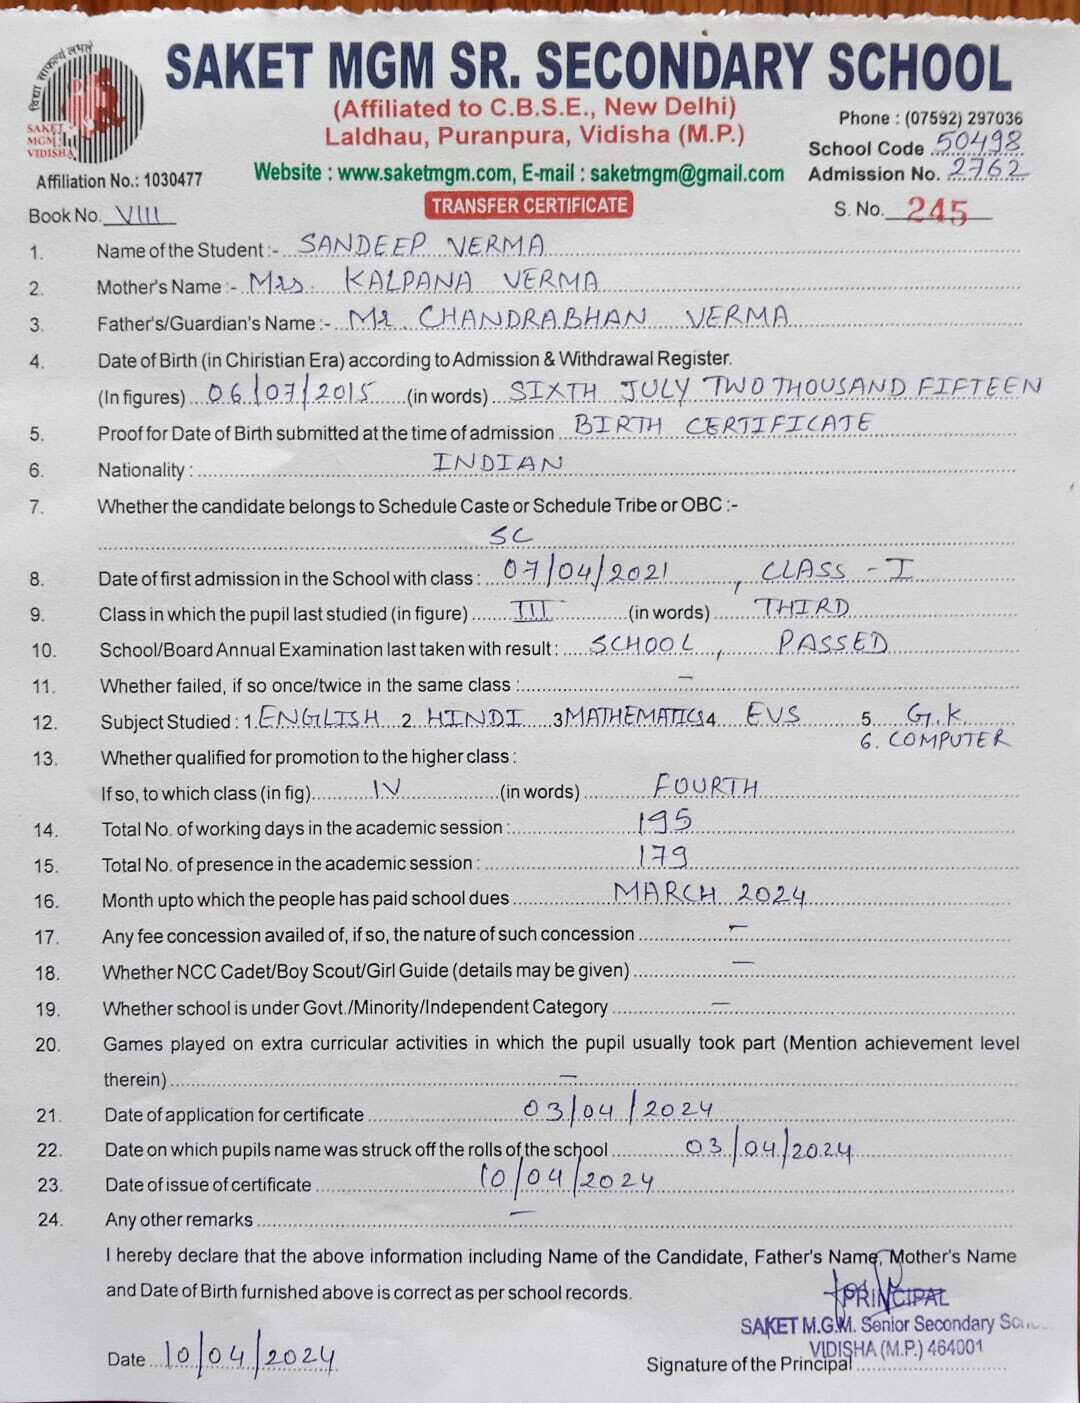 विद्या साफल्यं लभते
SAKET
MGM
VIDISHA
SAKET MGM SR. SECONDARY SCHOOL
(Affiliated to C.B.S.E., New Delhi)
Laldhau, Puranpura, Vidisha (M.P.)
Phone : (07592) 297036
School Code 50498
Website : www.saketmgm.com, E-mail : saketmgm@gmail.com Admission No. 2762
Affiliation No.: 1030477
Book No. VIII TRANSFER CERTIFICATE S. No. 245
1. Name of the Student :- SANDEEP VERMA
2. Mother's Name :- Mrs. KALPANA VERMA
3. Father's/Guardian's Name :- Mr. CHANDRABHAN VERMA
4. Date of Birth (in Chiristian Era) according to Admission & Withdrawal Register.
(In figures) 06/07/2015 (in words) SIXTH JULY TWO THOUSAND FIFTEEN
5. Proof for Date of Birth submitted at the time of admission BIRTH CERTIFICATE
6. Nationality : INDIAN
7. Whether the candidate belongs to Schedule Caste or Schedule Tribe or OBC :-
SC
8. Date of first admission in the School with class : 07/04/2021, CLASS - I
9. Class in which the pupil last studied (in figure) III (in words) THIRD
10. School/Board Annual Examination last taken with result : SCHOOL, PASSED
11. Whether failed, if so once/twice in the same class : -
12. Subject Studied : 1. ENGLISH 2 HINDI 3 MATHEMATICS 4 EVS 5 G.K
6. COMPUTER
13. Whether qualified for promotion to the higher class :
If so, to which class (in fig) IV (in words) FOURTH
14. Total No. of working days in the academic session : 195
15. Total No. of presence in the academic session : 179
16. Month upto which the people has paid school dues MARCH 2024
17. Any fee concession availed of, if so, the nature of such concession -
18. Whether NCC Cadet/Boy Scout/Girl Guide (details may be given) -
19. Whether school is under Govt./Minority/Independent Category -
20. Games played on extra curricular activities in which the pupil usually took part (Mention achievement level
therein) -
21. Date of application for certificate 03/04/2024
22. Date on which pupils name was struck off the rolls of the school 03/04/2024
23. Date of issue of certificate 10/04/2024
24. Any other remarks -
I hereby declare that the above information including Name of the Candidate, Father's Name, Mother's Name
and Date of Birth furnished above is correct as per school records.
PRINCIPAL
SAKET M.G.M. Senior Secondary
VIDISHA (M.P.) 464001
Date 10/04/2024
Signature of the Principal